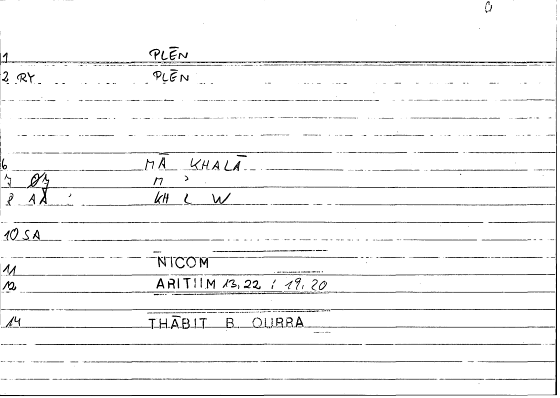 1 PLĒN
2 RY PLĒN
6 MĀ KHALĀ
7 M
8 AA KH L W
10 SA
11 NICOM
12 ARITIIM 13,22 ; 19,20
14 THĀBIT B. QURRA